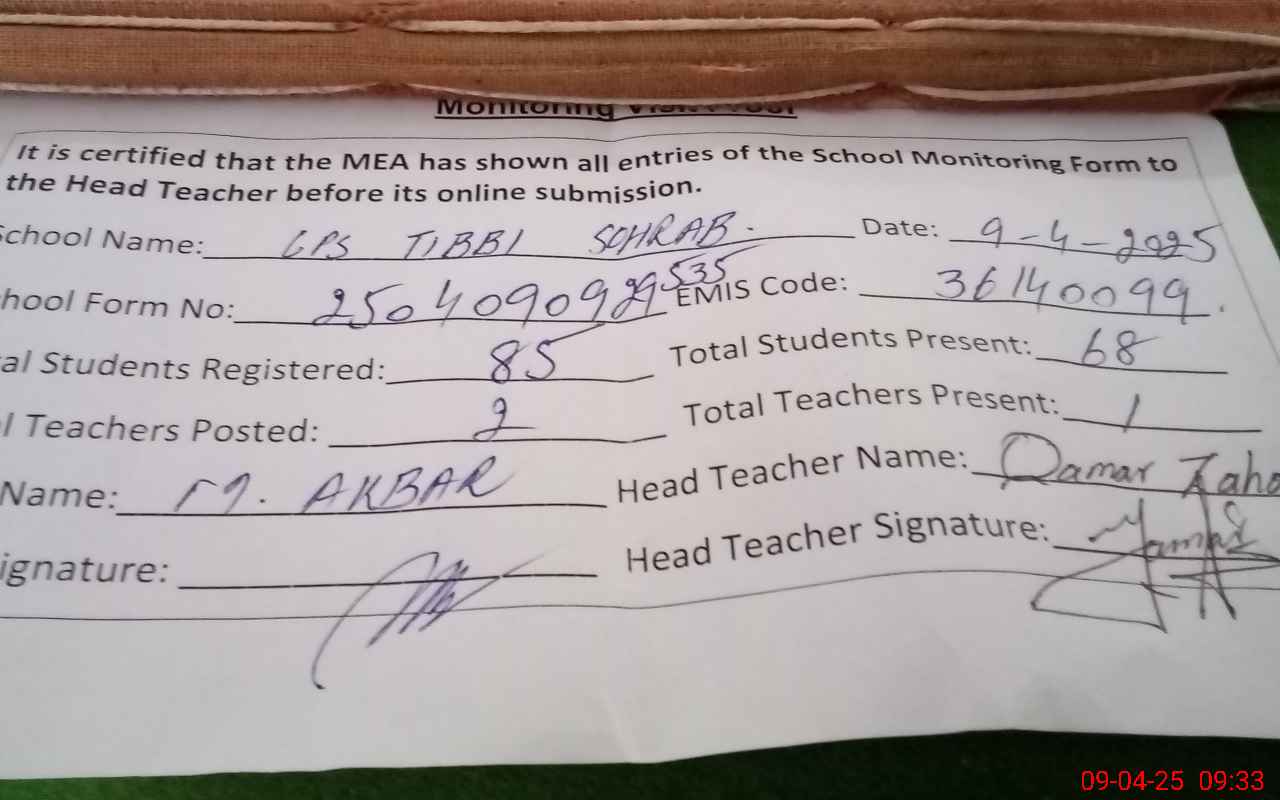 Monitoring Visit Proof
It is certified that the MEA has shown all entries of the School Monitoring Form to
the Head Teacher before its online submission.
School Name: GPS TIBBI SOHRAB. Date: 9-4-2025
hool Form No: 2504090929535 EMIS Code: 36140099.
al Students Registered: 85 Total Students Present: 68
l Teachers Posted: 2 Total Teachers Present: 1
Name: M. AKBAR Head Teacher Name: Qamar
ignature: Head Teacher Signature:
09-04-25 09:33